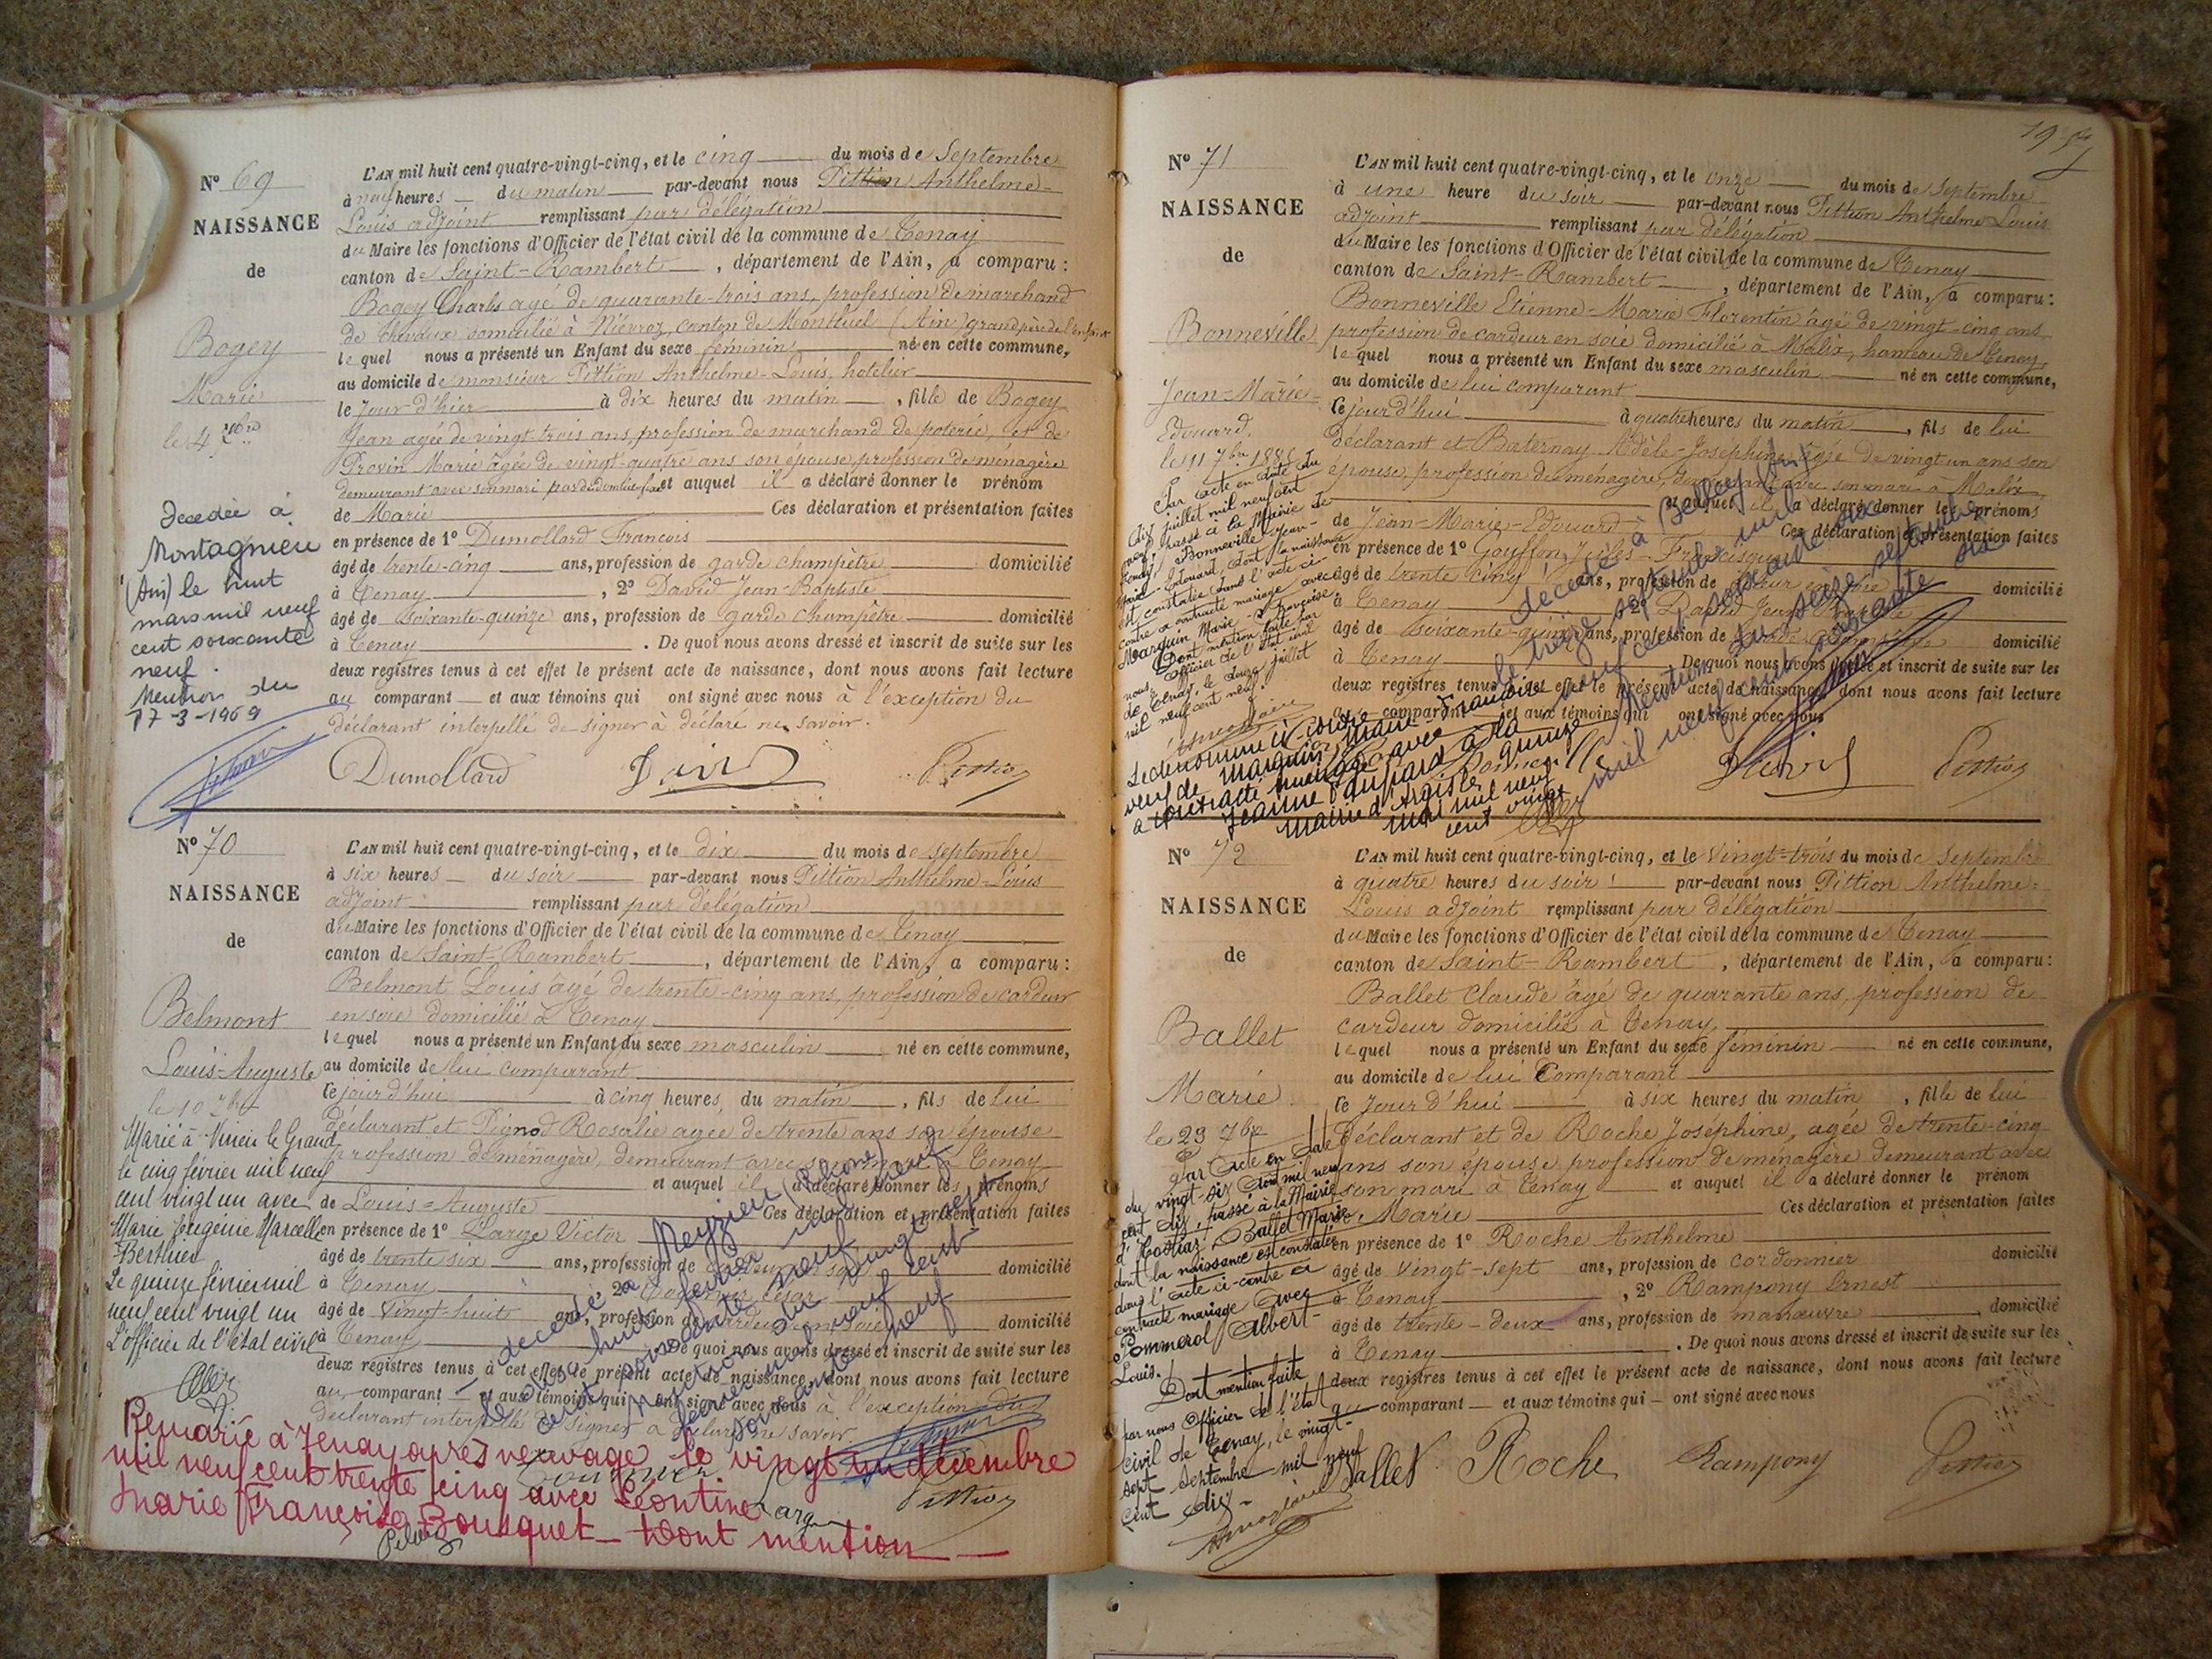 N° 69
NAISSANCE
de
Bogey
Marie
le 4 7bre
Décédée à
Montagnieu
(Ain) le huit
mars mil neuf
cent soixante
neuf.
Mention du
17-3-1969
L'AN mil huit cent quatre-vingt-cinq, et le cinq du mois de Septembre
à neuf heures du matin par-devant nous Pittion Anthelme-
Louis adjoint remplissant par délégation
du Maire les fonctions d'Officier de l'état civil de la commune de Tenay
canton de Saint-Rambert, département de l'Ain, a comparu :
Bogey Charles agé de quarante-trois ans, profession de marchand
de chevaux domicilié à Niévroz, canton de Montluel (Ain) grand père de l'enfant
lequel nous a présenté un Enfant du sexe féminin né en cette commune,
au domicile de monsieur Pittion Anthelme-Louis, hotelier
le Jour d'hier à dix heures du matin, fille de Bogey
Jean agée de vingt trois ans, profession de marchand de poterie, et de
Provin Marie âgée de vingt-quatre ans son épouse, profession de ménagère
demeurant avec son mari pas de domicile fixe et auquel il a déclaré donner le prénom
de Marie Ces déclaration et présentation faites
en présence de 1° Dumollard François
âgé de trente-cinq ans, profession de garde champêtre domicilié
à Tenay, 2° David Jean-Baptiste
âgé de soixante-quinze ans, profession de garde champêtre domicilié
à Tenay. De quoi nous avons dressé et inscrit de suite sur les
deux registres tenus à cet effet le présent acte de naissance, dont nous avons fait lecture
au comparant et aux témoins qui ont signé avec nous à l'exception du
déclarant interpellé de signer à déclaré ne savoir.
Dumollard David Pittion
N° 70
NAISSANCE
de
Belmont
Louis-Auguste
le 10 7bre
Marié à Virieu le Grand
le cinq février mil neuf
cent vingt un avec
Marie Eugénie Marcelle
Berthier
Le quinze février mil
neuf cent vingt un
L'officier de l'état civil
L'AN mil huit cent quatre-vingt-cinq, et le dix du mois de Septembre
à six heures du soir par-devant nous Pittion Anthelme-Louis
adjoint remplissant par délégation
du Maire les fonctions d'Officier de l'état civil de la commune de Tenay
canton de Saint-Rambert, département de l'Ain, a comparu :
Belmont Louis âgé de trente-cinq ans, profession de cardeur
en soie domicilié à Tenay
lequel nous a présenté un Enfant du sexe masculin né en cette commune,
au domicile de lui comparant
ce jourd'hui à cinq heures du matin, fils de lui
déclarant et Pignod Rosalie agée de trente ans son épouse
profession de ménagère, demeurant avec son mari à Tenay
et auquel il a déclaré donner les prénoms
de Louis-Auguste Ces déclaration et présentation faites
en présence de 1° Large Victor
âgé de trente six ans, profession de cardeur en soie domicilié
à Tenay, 2° César
âgé de vingt-huit ans, profession de cardeur en soie domicilié
à Tenay De quoi nous avons dressé et inscrit de suite sur les
deux registres tenus à cet effet le présent acte de naissance, dont nous avons fait lecture
au comparant et aux témoins qui ont signé avec nous à l'exception du
déclarant interpellé de signer a déclaré ne savoir.
décédé à Meyzieu (Rhône)
le dix huit février mil neuf
cent soixante neuf
Mention du vingt sept
février mil neuf cent
soixante neuf
Large Pittion
Remarié à Tenay après veuvage le vingt un décembre
mil neuf cent trente cinq avec Léontine
Marie Françoise Bousquet - Dont mention
N° 71
NAISSANCE
de
Bonneville
Jean-Marie-
Edouard.
le 11 7bre 1885
Par acte en date du
dix juillet mil neuf cent
neuf, passé à la Mairie de
Tenay, Bonneville Jean-
Marie-Edouard, dont la naissance
est constatée dans l'acte ci-
contre a contracté mariage avec
Marguin Marie-Françoise
Dont mention faite par
nous Officier de l'état civil
de Tenay, le douze juillet
mil neuf cent neuf.
Le dénommé ci-contre
veuf de Marguin, Marie Françoise
a contracté mariage avec
Jeanne à la
mairie d' le quinze
mai mil neuf
cent vingt
L'AN mil huit cent quatre-vingt-cinq, et le onze du mois de Septembre
à une heure du soir par-devant nous Pittion Anthelme Louis
adjoint remplissant par délégation
du Maire les fonctions d'Officier de l'état civil de la commune de Tenay
canton de Saint-Rambert, département de l'Ain, a comparu :
Bonneville Etienne-Marie Florentin âgé de vingt-cinq ans
profession de cardeur en soie domicilié à Malix, hameau de Tenay
lequel nous a présenté un Enfant du sexe masculin né en cette commune,
au domicile de lui comparant
ce jourd'hui à quatre heures du matin, fils de lui
déclarant et Baternay Adèle-Joséphine âgée de vingt un ans son
épouse, profession de ménagère, demeurant avec son mari à Malix
et auquel il a déclaré donner les prénoms
de Jean-Marie-Edouard Ces déclaration et présentation faites
en présence de 1° Gouffon Jules-Francisque
âgé de trente cinq ans, profession de domicilié
à Tenay 2° David Jean Baptiste
âgé de soixante-quinze ans, profession de garde champêtre domicilié
à Tenay De quoi nous avons dressé et inscrit de suite sur les
deux registres tenus à cet effet le présent acte de naissance, dont nous avons fait lecture
au comparant et aux témoins qui ont signé avec nous
décédé à Belley (Ain)
le treize septembre mil
neuf cent soixante six
Mention du seize septembre
mil neuf cent soixante six
David Pittion
N° 72
NAISSANCE
de
Ballet
Marie
le 23 7bre
Par acte en date
du vingt-six Août mil neuf
cent dix, passé à la Mairie
d'Hostiaz, Ballet Marie
dont la naissance est constatée
dans l'acte ci-contre a
contracté mariage avec
Pommerol Albert-
Louis.
Dont mention faite
par nous Officier de l'état
civil de Tenay, le vingt-
sept septembre mil neuf
cent dix-
L'AN mil huit cent quatre-vingt-cinq, et le vingt-trois du mois de Septembre
à quatre heures du soir par-devant nous Pittion Anthelme-
Louis adjoint remplissant par délégation
du Maire les fonctions d'Officier de l'état civil de la commune de Tenay
canton de Saint-Rambert, département de l'Ain, a comparu :
Ballet Claude âgé de quarante ans, profession de
cardeur domicilié à Tenay
lequel nous a présenté un Enfant du sexe féminin né en cette commune,
au domicile de lui Comparant
ce Jour d'hui à six heures du matin, fille de lui
déclarant et de Roche Joséphine, agée de trente-cinq
ans son épouse profession de ménagère demeurant avec
son mari à Tenay et auquel il a déclaré donner le prénom
de Marie Ces déclaration et présentation faites
en présence de 1° Roche Anthelme
âgé de vingt-sept ans, profession de cordonnier domicilié
à Tenay, 2° Rampony Ernest
âgé de trente-deux ans, profession de manœuvre domicilié
à Tenay. De quoi nous avons dressé et inscrit de suite sur les
deux registres tenus à cet effet le présent acte de naissance, dont nous avons fait lecture
au comparant et aux témoins qui ont signé avec nous
Ballet Roche Rampony Pittion